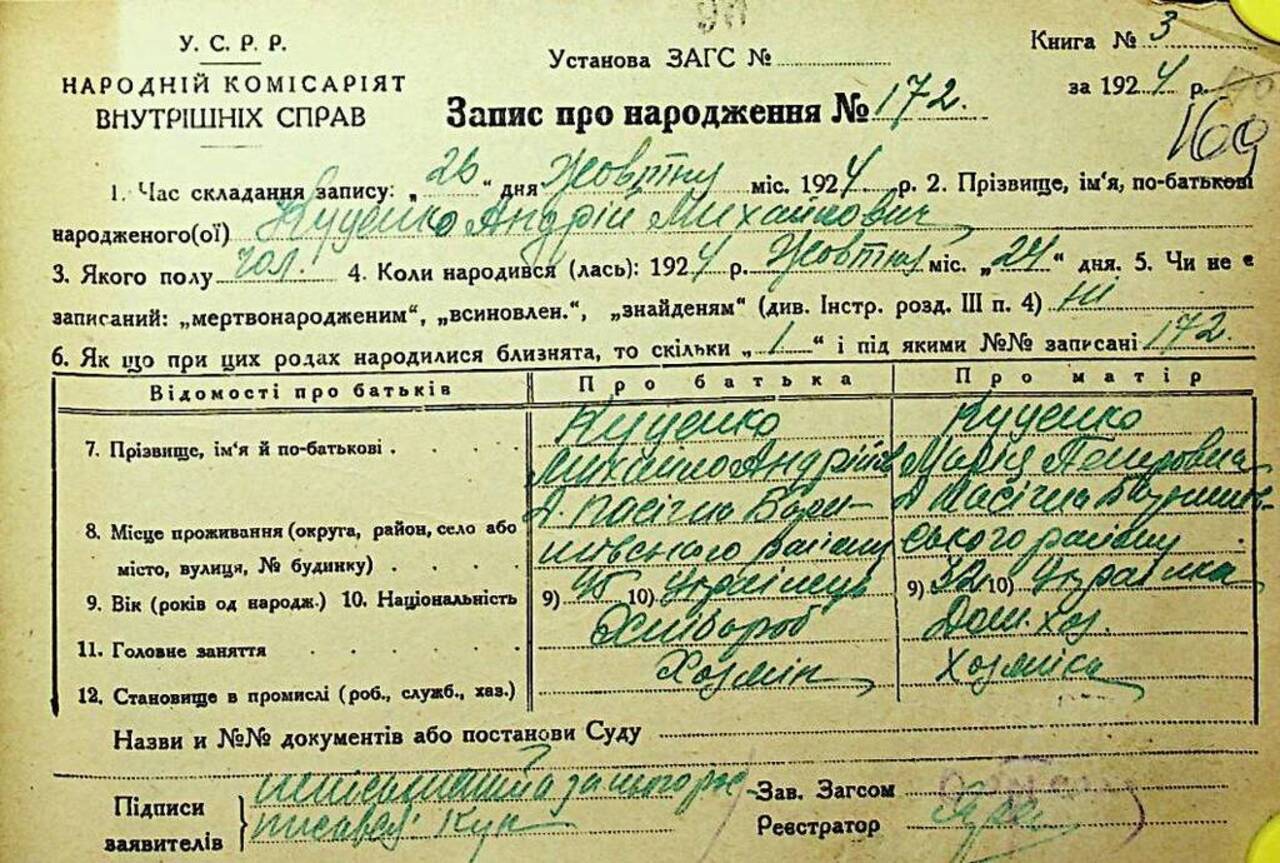 У. С. Р. Р.
НАРОДНІЙ КОМІСАРІЯТ
ВНУТРІШНІХ СПРАВ
Установа ЗАГС №
Книга № 3
за 1924 р.
Запис про народження № 172.
169
1. Час складання запису: „26“ дня Жовтня міс. 1924 р. 2. Прізвище, ім'я, по-батькові
народженого(ої) Куценко Андрій Михайлович
3. Якого полу чол. 4. Коли народився (лась): 1924 р. Жовтня міс. „24“ дня. 5. Чи не є
записаний: „мертвонародженим“, „всиновлен.“, „знайденям“ (див. Інстр. розд. III п. 4) Ні
6. Як що при цих родах народилися близнята, то скільки „1“ і під якими №№ записані 172.
Відомості про батьків Про батька Про матір
7. Прізвище, ім'я й по-батькові . . . . Куценко Куценко
Михайло Андрійов Марія Петровна
8. Місце проживання (округа, район, село або Пасічна Бари- Пасічна Баришів-
місто, вулиця, № будинку) . . . . шівського району ського району
9. Вік (років од народж.) 10. Національність 9) 45 10) Українець 9) 32 10) Українка
11. Головне заняття . . . . . Хлібороб Дом. хоз.
12. Становище в промислі (роб., служб., хаз.) Хозяїн Хозяйка
Назви и №№ документів або постанови Суду
Підписи
заявителів
за нього рос
писався: Куц
Зав. Загсом
Реєстратор